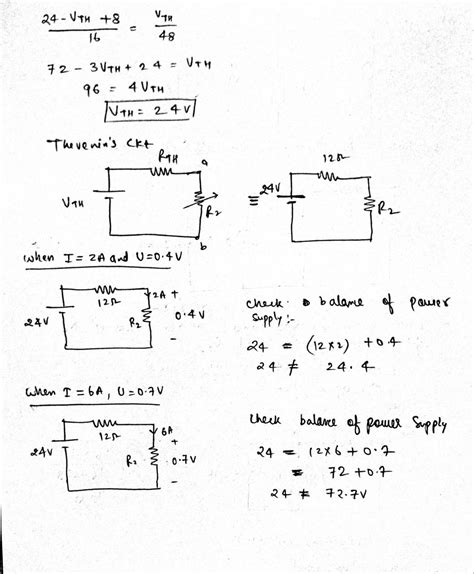 24 - VTH + 8 / 16 = VTH / 48
72 - 3VTH + 24 = VTH
96 = 4VTH
VTH = 24V
Thevenin's Ckt
RTH
a
VTH
R2
b
≡
12Ω
24V
R2
when I = 2A and U=0.4V
12Ω
2A +
24V
R2
0.4V
-
check balance of power
supply :-
24 = (12×2) + 0.4
24 ≠ 24.4
when I = 6A, U = 0.7V
12Ω
6A
+
24V
R2
0.7V
-
check balance of power supply
24 = 12×6 + 0.7
= 72 + 0.7
24 ≠ 72.7V